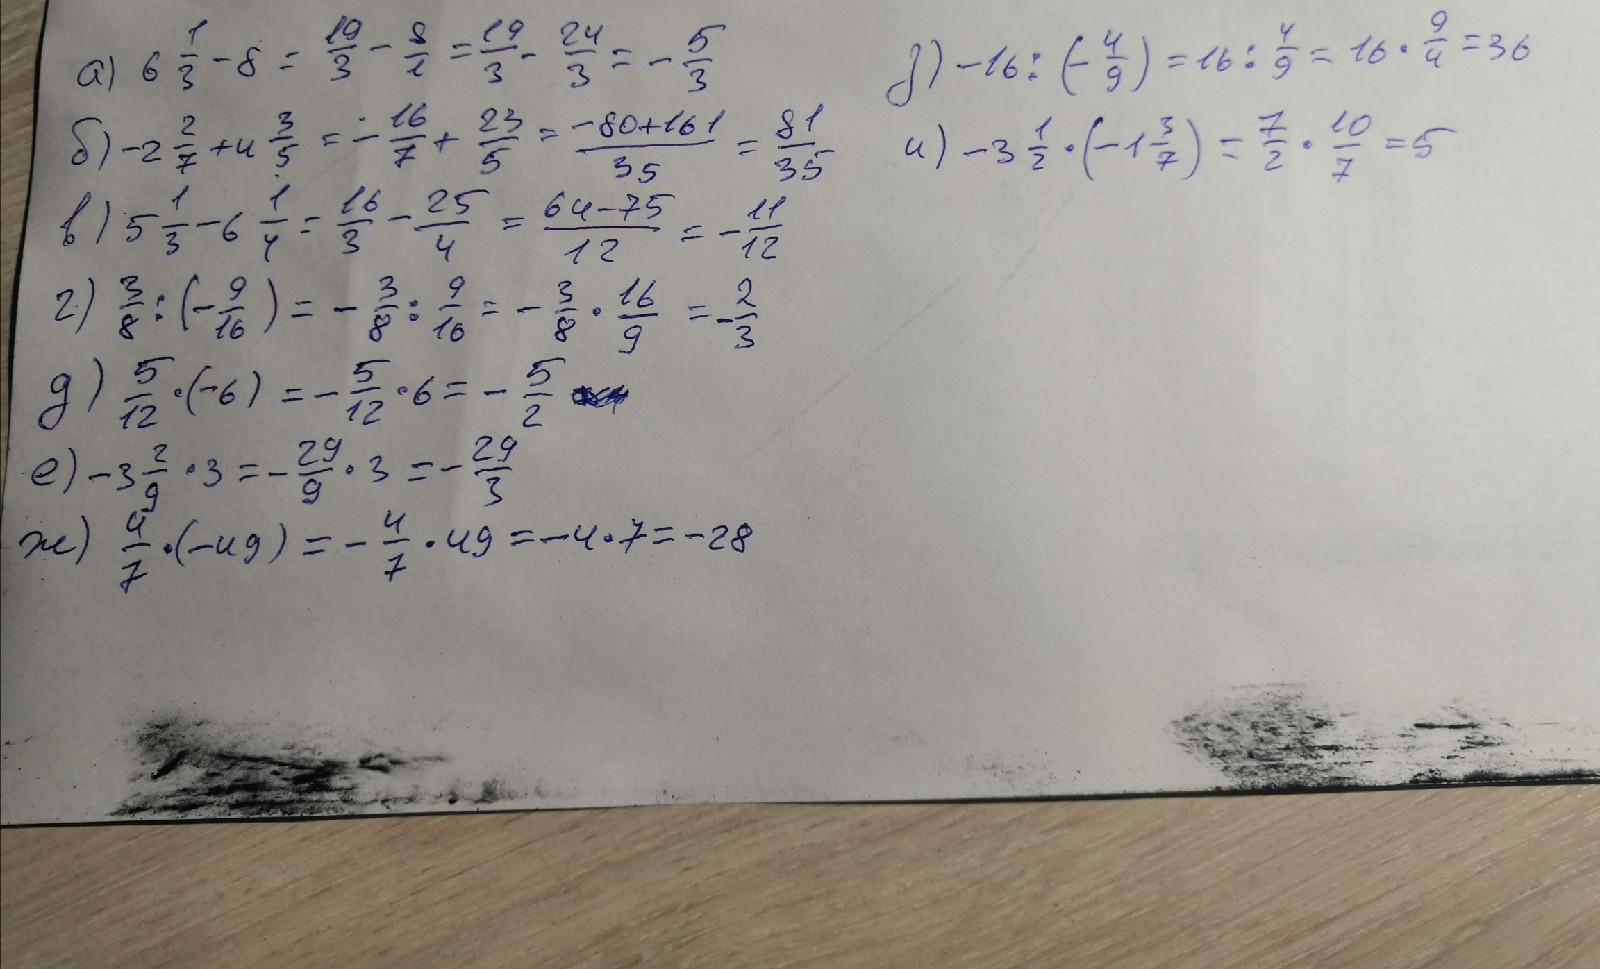 а) 6 1/3 - 8 = 19/3 - 8/1 = 19/3 - 24/3 = - 5/3
б) -2 2/7 + 4 3/5 = - 16/7 + 23/5 = (-80+161)/35 = 81/35
в) 5 1/3 - 6 1/4 = 16/3 - 25/4 = (64-75)/12 = - 11/12
г) 3/8 : (- 9/16) = - 3/8 : 9/16 = - 3/8 · 16/9 = - 2/3
д) 5/12 · (-6) = - 5/12 · 6 = - 5/2
е) -3 2/9 · 3 = - 29/9 · 3 = - 29/3
ж) 4/7 · (-49) = - 4/7 · 49 = -4 · 7 = -28
з) -16 : (- 4/9) = 16 : 4/9 = 16 · 9/4 = 36
и) -3 1/2 · (-1 3/7) = 7/2 · 10/7 = 5